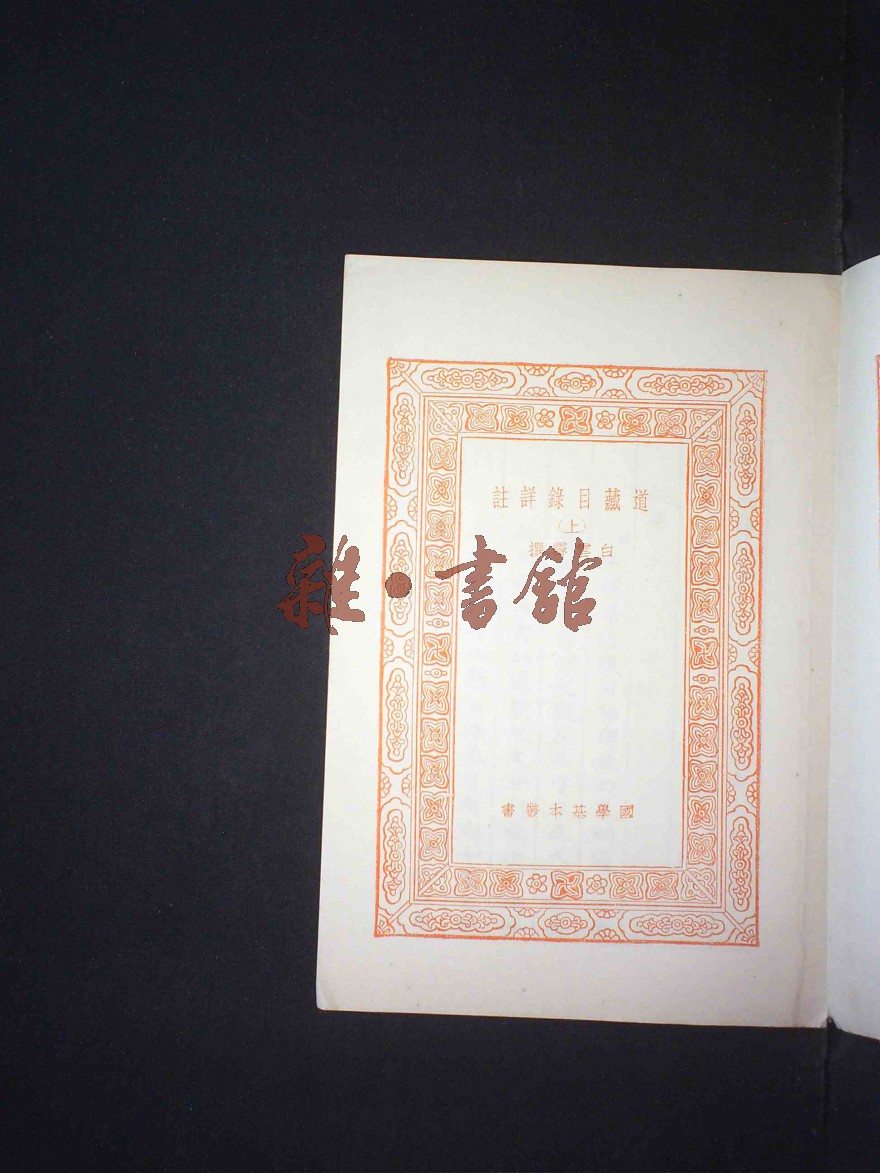 道藏目錄詳註
(上)
白雲霽撰
雜·書館
國學基本叢書